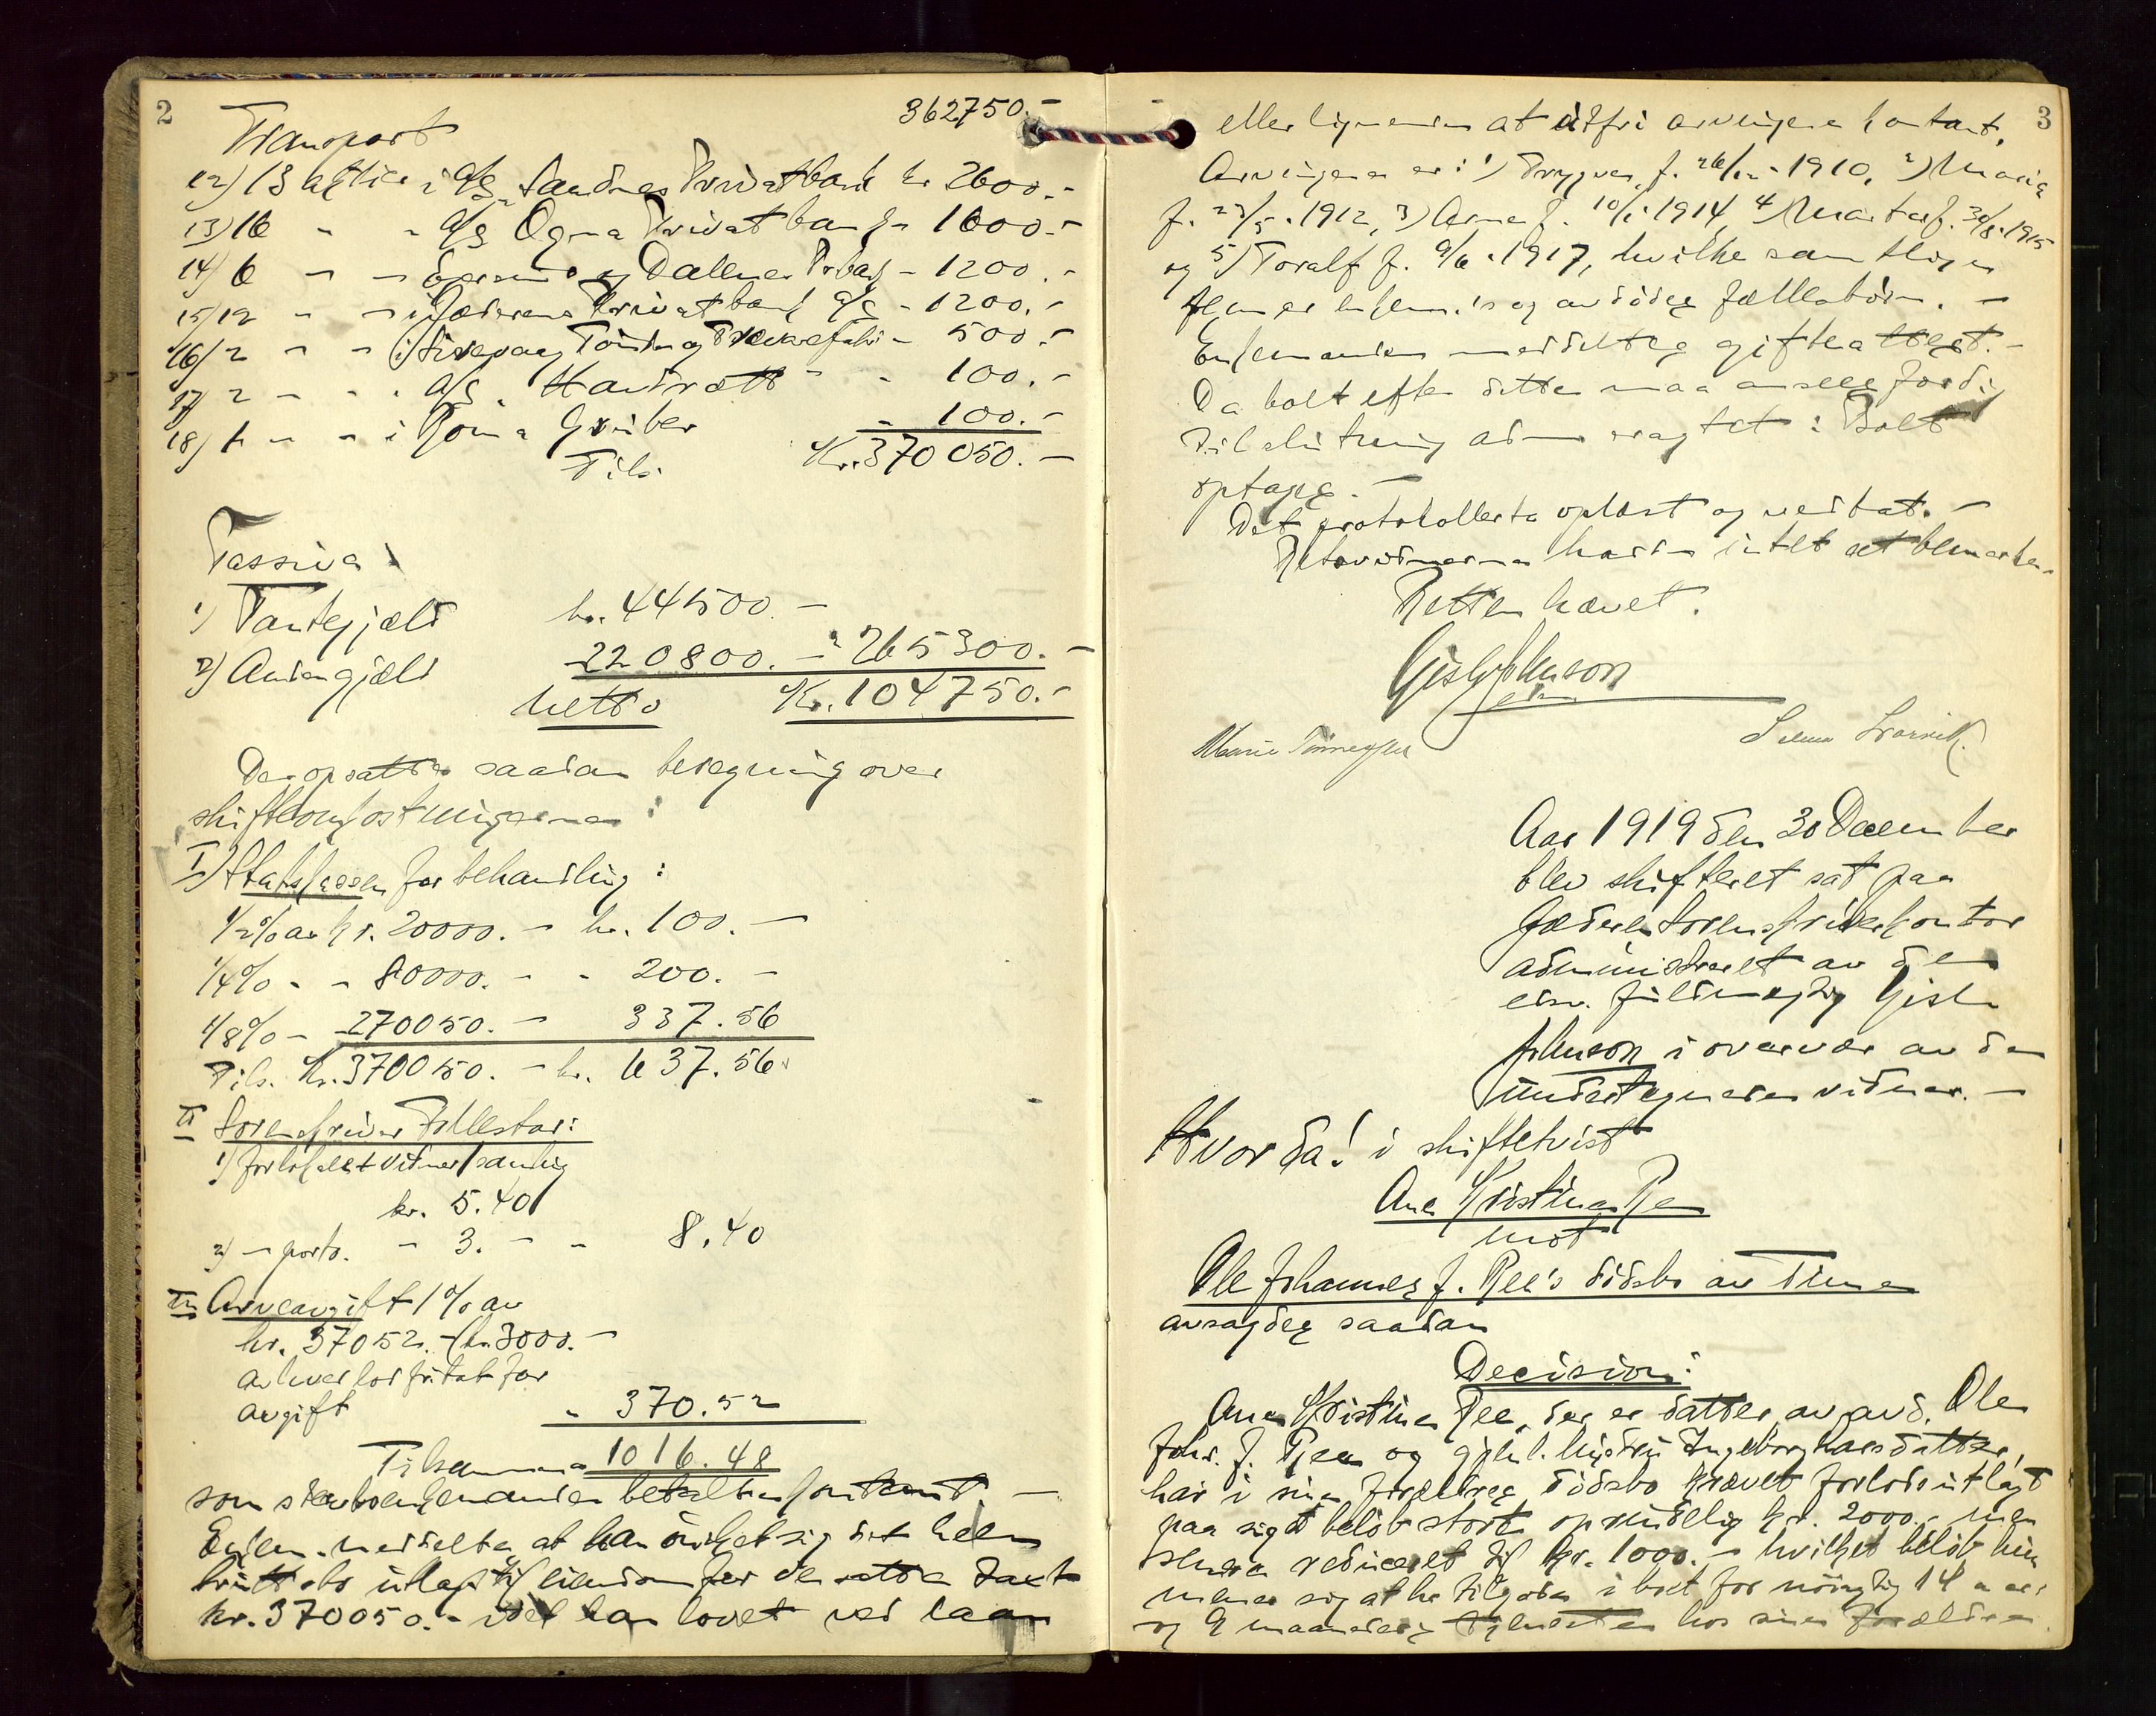 2
Transport 362750.-
12) 13 aktier i A/S Sandnes Privatbank kr 2600.-
13) 16 " " A/S Ogna Privatbank " 1600.-
14) 6 " " Egersund og Dalernes Pr.bank - 1200.-
15) 12 " " i Jæderens Privatbank A/S - 1200.-
16) 2 " " i Sirevaag Tønde og fabr - 500.-
17) 2 " " A/S Hardratt " - 100.-
18) 1 " " i Gruber - 100.-
Tils. Kr. 370050.-
Passiva
1) Pantegjæld kr. 44500.-
2) Andengjæld 220800.- " 265300.-
netto Kr. 104750.-
Der opsattes saadan beregning over
skifteomkostningerne:
I) Statskassen for behandling:
1/2% av kr. 20000.- kr. 100.-
1/4% - - 80000.- - 200.-
1/8% - 270050.- 337.56
Tils. Kr. 370050.- kr. 637.56
II Sorenskriver Fallestar:
1) forlokalet vidner samlig
kr. 5.40
2) - porto. - 3.- - 8.40
III Arveavgift 1% av
kr. 37052.- (kr. 3000.-
av hver lod fritat for
avgift - 370.52
Tilsammen 1016.48
som enkemanden betalte kontant -
Enkem. meddelte at han ønsket sig det hele
brutto bo utlagt eiendom for den satte takst
kr. 370050.- idet han lovet ved laan
3
eller lignende at utfri arvingene kontant.
Arvingene er: 1) Trygve, f. 26/12-1910, 2) Maria
f. 23/5.1912, 3) Arne f. 10/1 1914, 4) Marta f. 30/8.1915
og 5) Toralf f. 9/6.1917, hvilke samtlige
er enkem.'s og avdødes fællesbørn. -
Enkemanden meddeltes gifteattest. -
Da boet efter dette maa ansees færdig
til slutning vagtet: Boet
optages. -
Det protokollerte oplæst og vedtat. -
Retsvidnerne hadde intet at bemerke.
Retten hævet.
Gisle Johnson
edsv.
Marie Tønnessen Selma
Aar 1919 den 30 December
blev skifteret sat paa
Jæderen Sorenskriverkontor
administreret av den
edsv. fuldmægtig Gisle
Johnson i overvær av de
undertegnede vidner. -
Hvorda! i skiftetvist
Ane Kristine Ree
mot
Ole Johannes J. Ree's dødsbo av Time
avsagdes saadan
Decision:
Ane Kristine Ree, der er datter av avd. Ole
Johs. J. Ree og gjenl. hustru Ingeborg Larsdatter,
har i sine forældres dødsbo krævet forlods utlagt
paa sig et beløb stort oprindelig kr. 2000.- men
senere reduceret til kr. 1000.- hvilket beløb hun
mener sig at ha tilgode i boet for nøiagtig 14 aar
og 9 maaneders tjeneste hos sine forældre